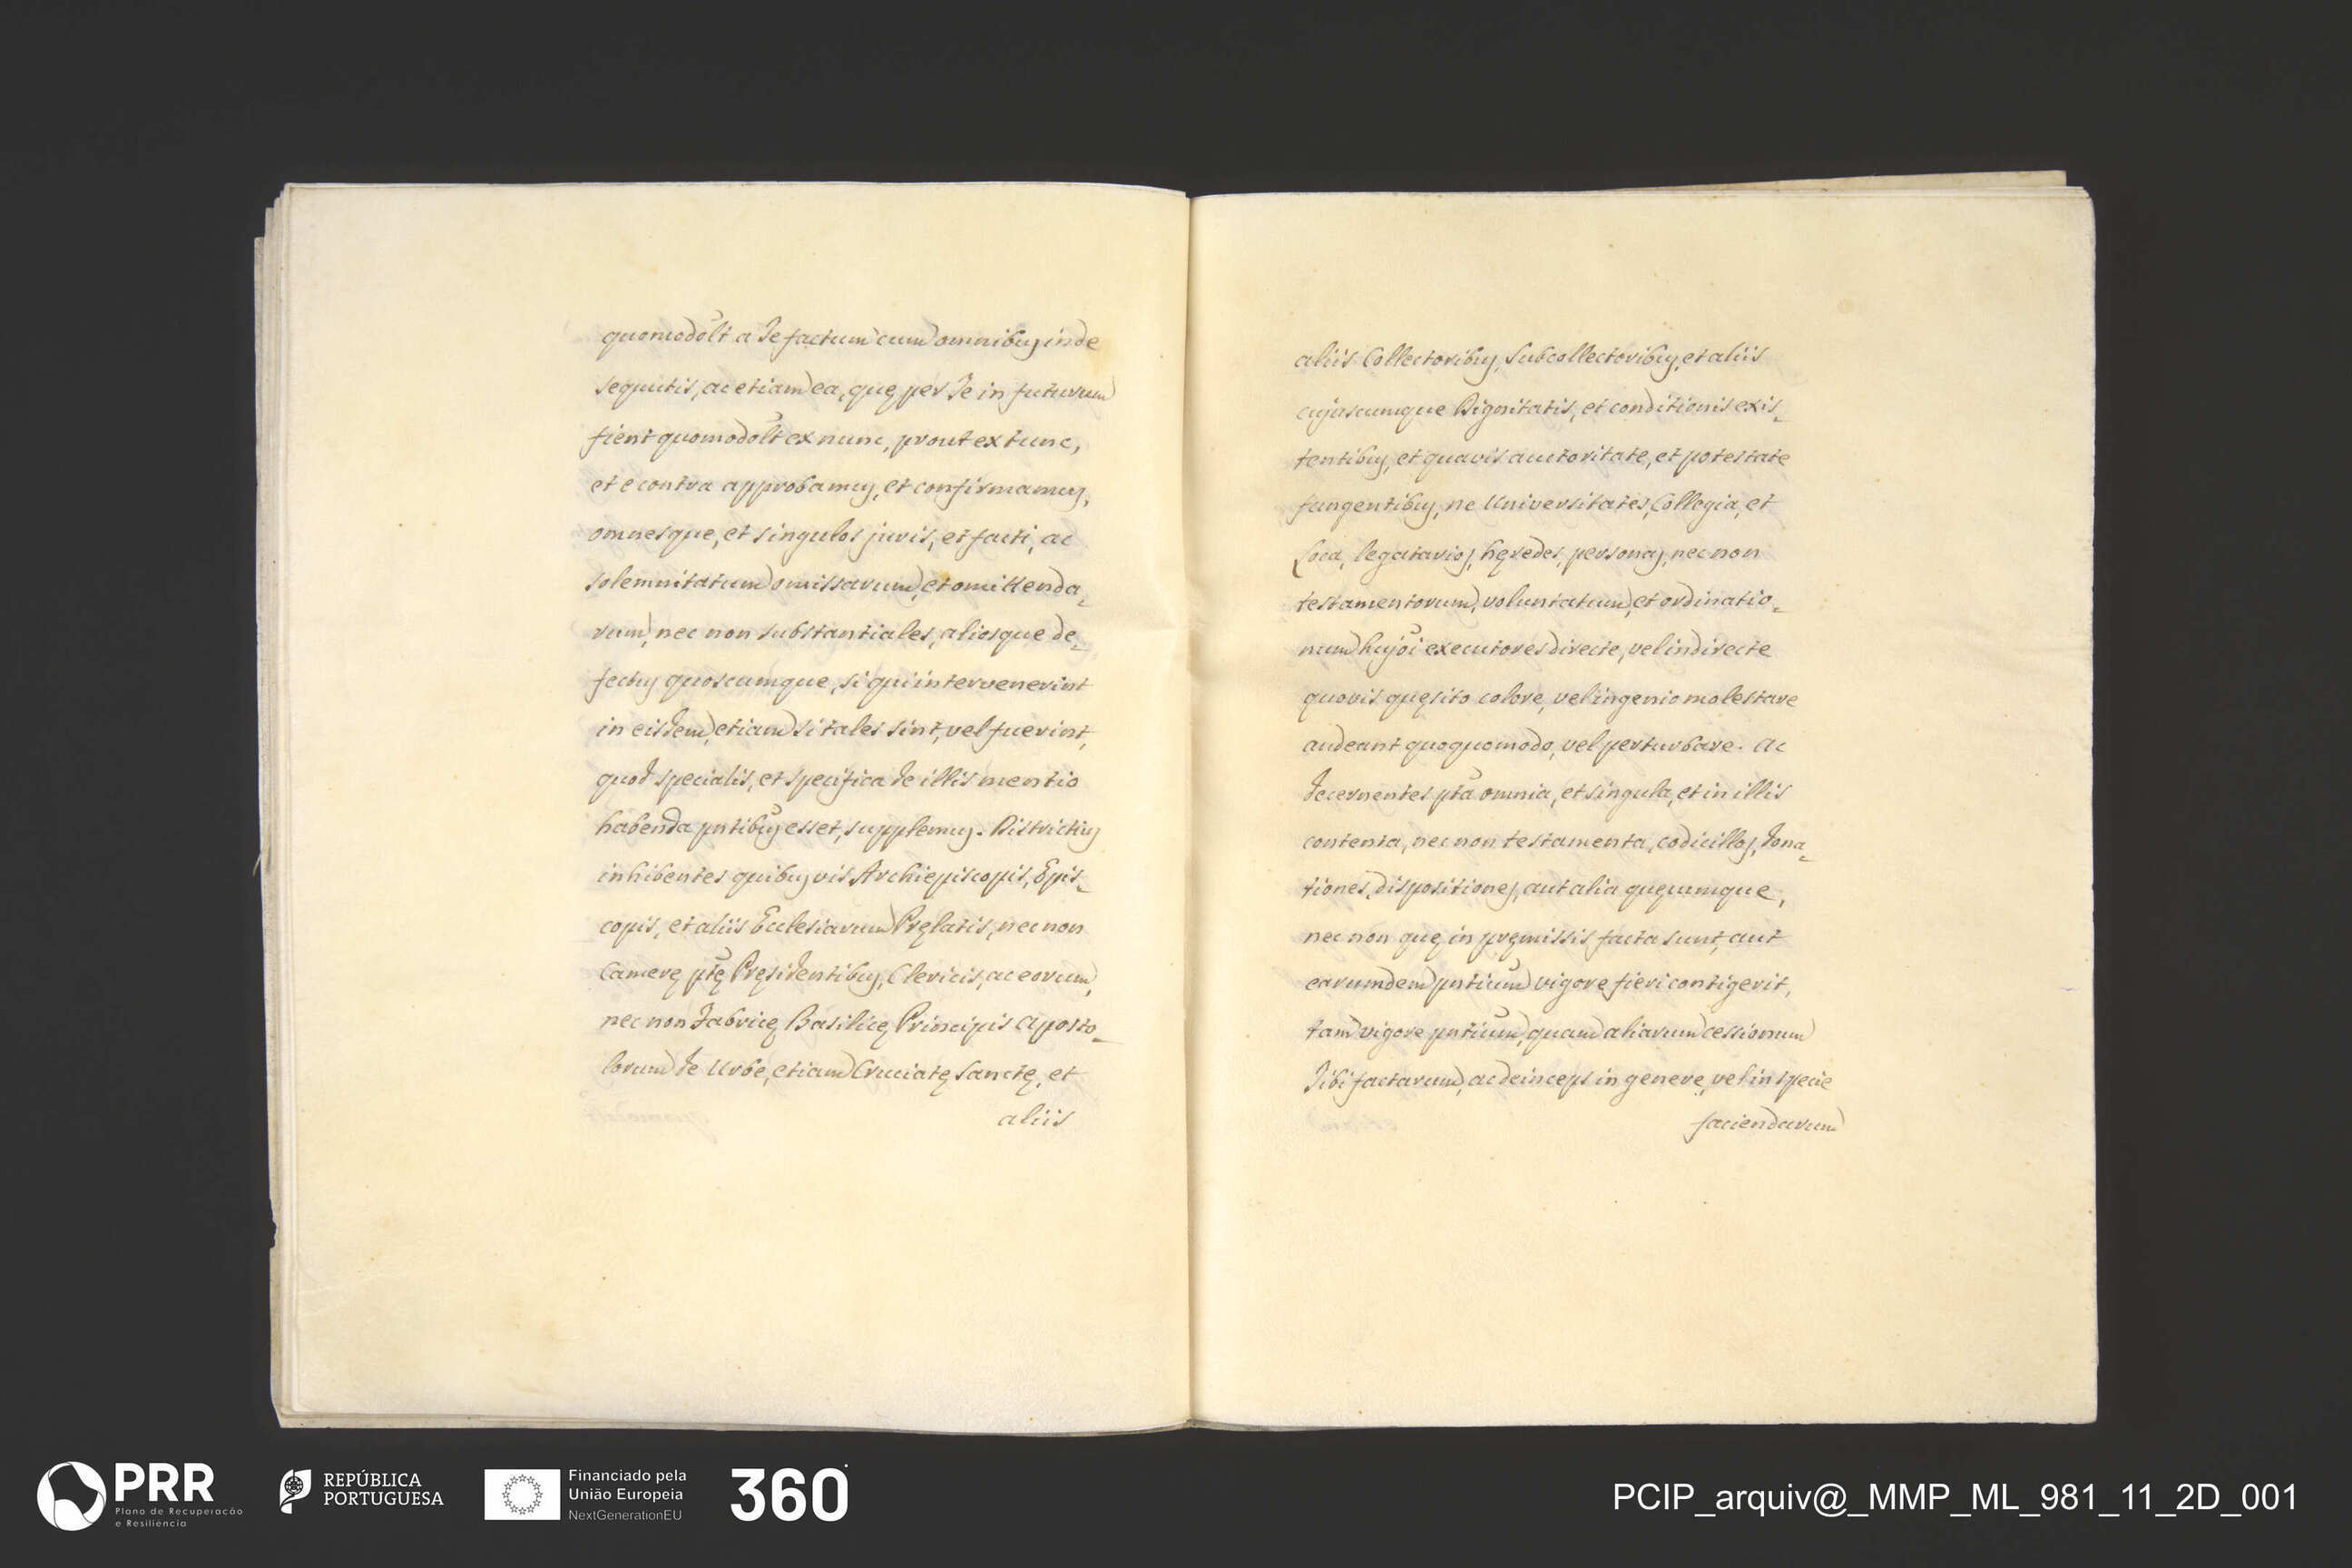 quomodõlt a Te factum cum omnibus inde
sequutis, ac etiam ea, quę per Te in futurum
fient quomodõlt ex nunc, prout ex tunc,
et e contra approbamus, et confirmamus,
omnesque, et singulos juris, et facti, ac
solemnitatum omissarum, et omittenda-
rum, nec non substantiales, aliosque de-
fectus quoscumque, si qui intervenerint
in eisdem, etiam si tales sint, vel fuerint,
quod specialis, et specifica de illis mentio
habenda pñtibus esset, supplemus. Districtius
inhibentes quibusvis Archiepiscopis, Epis-
copis, et aliis Ecclesiarum Pręlatis, nec non
Camerę ptę Pręsidentibus, Clericis, ac eorum,
nec non Fabricę Basilicę Principis Aposto-
lorum de Urbe, etiam Cruciatę Sanctę, et
aliis
aliis Collectoribus, Subcollectoribus, et aliis
cujuscumque Dignitatis, et conditionis exis-
tentibus, et quavis auctoritate, et potestate
fungentibus, ne Universitates, Collegia, et
Loca, legatarios, hęredes, personas, nec non
testamentorum, voluntatum, et ordinatio-
num hujõi executores directe, vel indirecte
quovis quęsito colore, vel ingenio molestare
audeant quoquomodo, vel perturbare. Ac
decernentes pta omnia, et singula, et in illis
contenta, nec non testamenta, codicillos, dona-
tiones, dispositiones, aut alia quęcumque,
nec non quę in pręmissis facta sunt, aut
earumdem pñtium vigore fieri contigerit,
tam vigore pñtium, quam aliarum cessionum
Tibi factarum, ac deinceps in genere, vel in specie
faciendarum
PRR
Plano de Recuperação
e Resiliência
REPÚBLICA
PORTUGUESA
Financiado pela
União Europeia
NextGenerationEU
360
PCIP_arquiv@_MMP_ML_981_11_2D_001